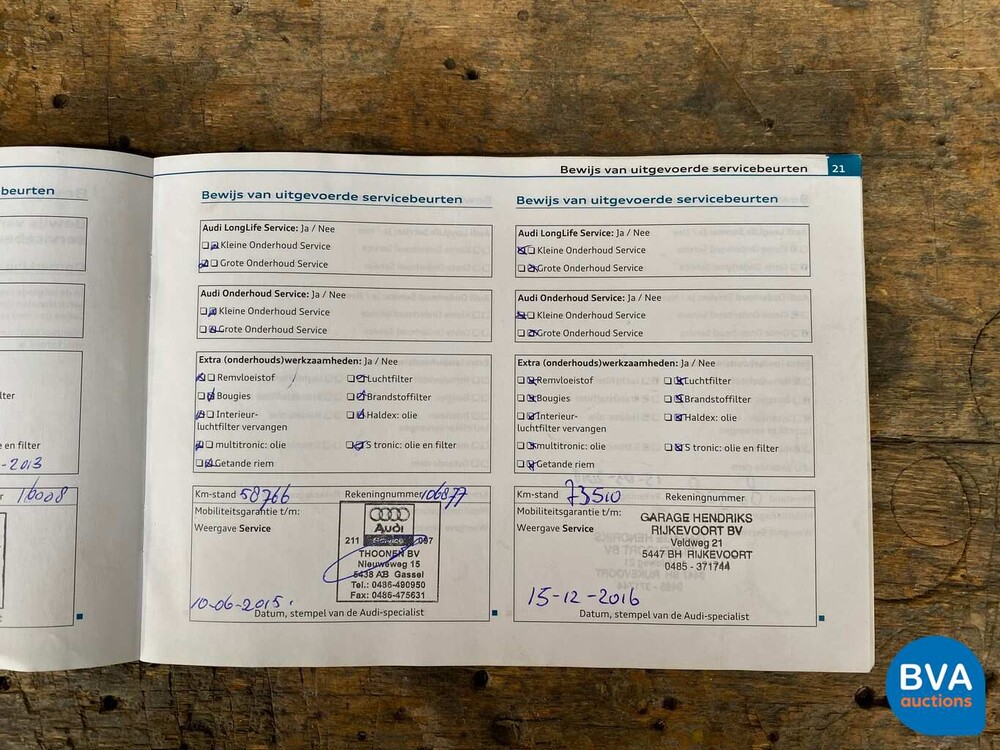 Bewijs van uitgevoerde servicebeurten 21
beurten
lter
en en filter
-2013
r 16008
Bewijs van uitgevoerde servicebeurten
Audi LongLife Service: Ja / Nee
Kleine Onderhoud Service
Grote Onderhoud Service
Audi Onderhoud Service: Ja / Nee
Kleine Onderhoud Service
Grote Onderhoud Service
Extra (onderhouds)werkzaamheden: Ja / Nee
Remvloeistof Luchtfilter
Bougies Brandstoffilter
Interieur- Haldex: olie
luchtfilter vervangen
multitronic: olie S tronic: olie en filter
Getande riem
Km-stand 58766 Rekeningnummer 106877
Mobiliteitsgarantie t/m:
Weergave Service
Audi
211 Service 097
THOONEN BV
Nieuweweg 15
5438 AB Gassel
Tel.: 0486-490950
Fax: 0486-475631
10-06-2015.
Datum, stempel van de Audi-specialist
Bewijs van uitgevoerde servicebeurten
Audi LongLife Service: Ja / Nee
Kleine Onderhoud Service
Grote Onderhoud Service
Audi Onderhoud Service: Ja / Nee
Kleine Onderhoud Service
Grote Onderhoud Service
Extra (onderhouds)werkzaamheden: Ja / Nee
Remvloeistof Luchtfilter
Bougies Brandstoffilter
Interieur- Haldex: olie
luchtfilter vervangen
multitronic: olie S tronic: olie en filter
Getande riem
Km-stand 73510 Rekeningnummer
Mobiliteitsgarantie t/m:
Weergave Service
GARAGE HENDRIKS
RIJKEVOORT BV
Veldweg 21
5447 BH RIJKEVOORT
0485 - 371744
15-12-2016
Datum, stempel van de Audi-specialist
BVA
auctions